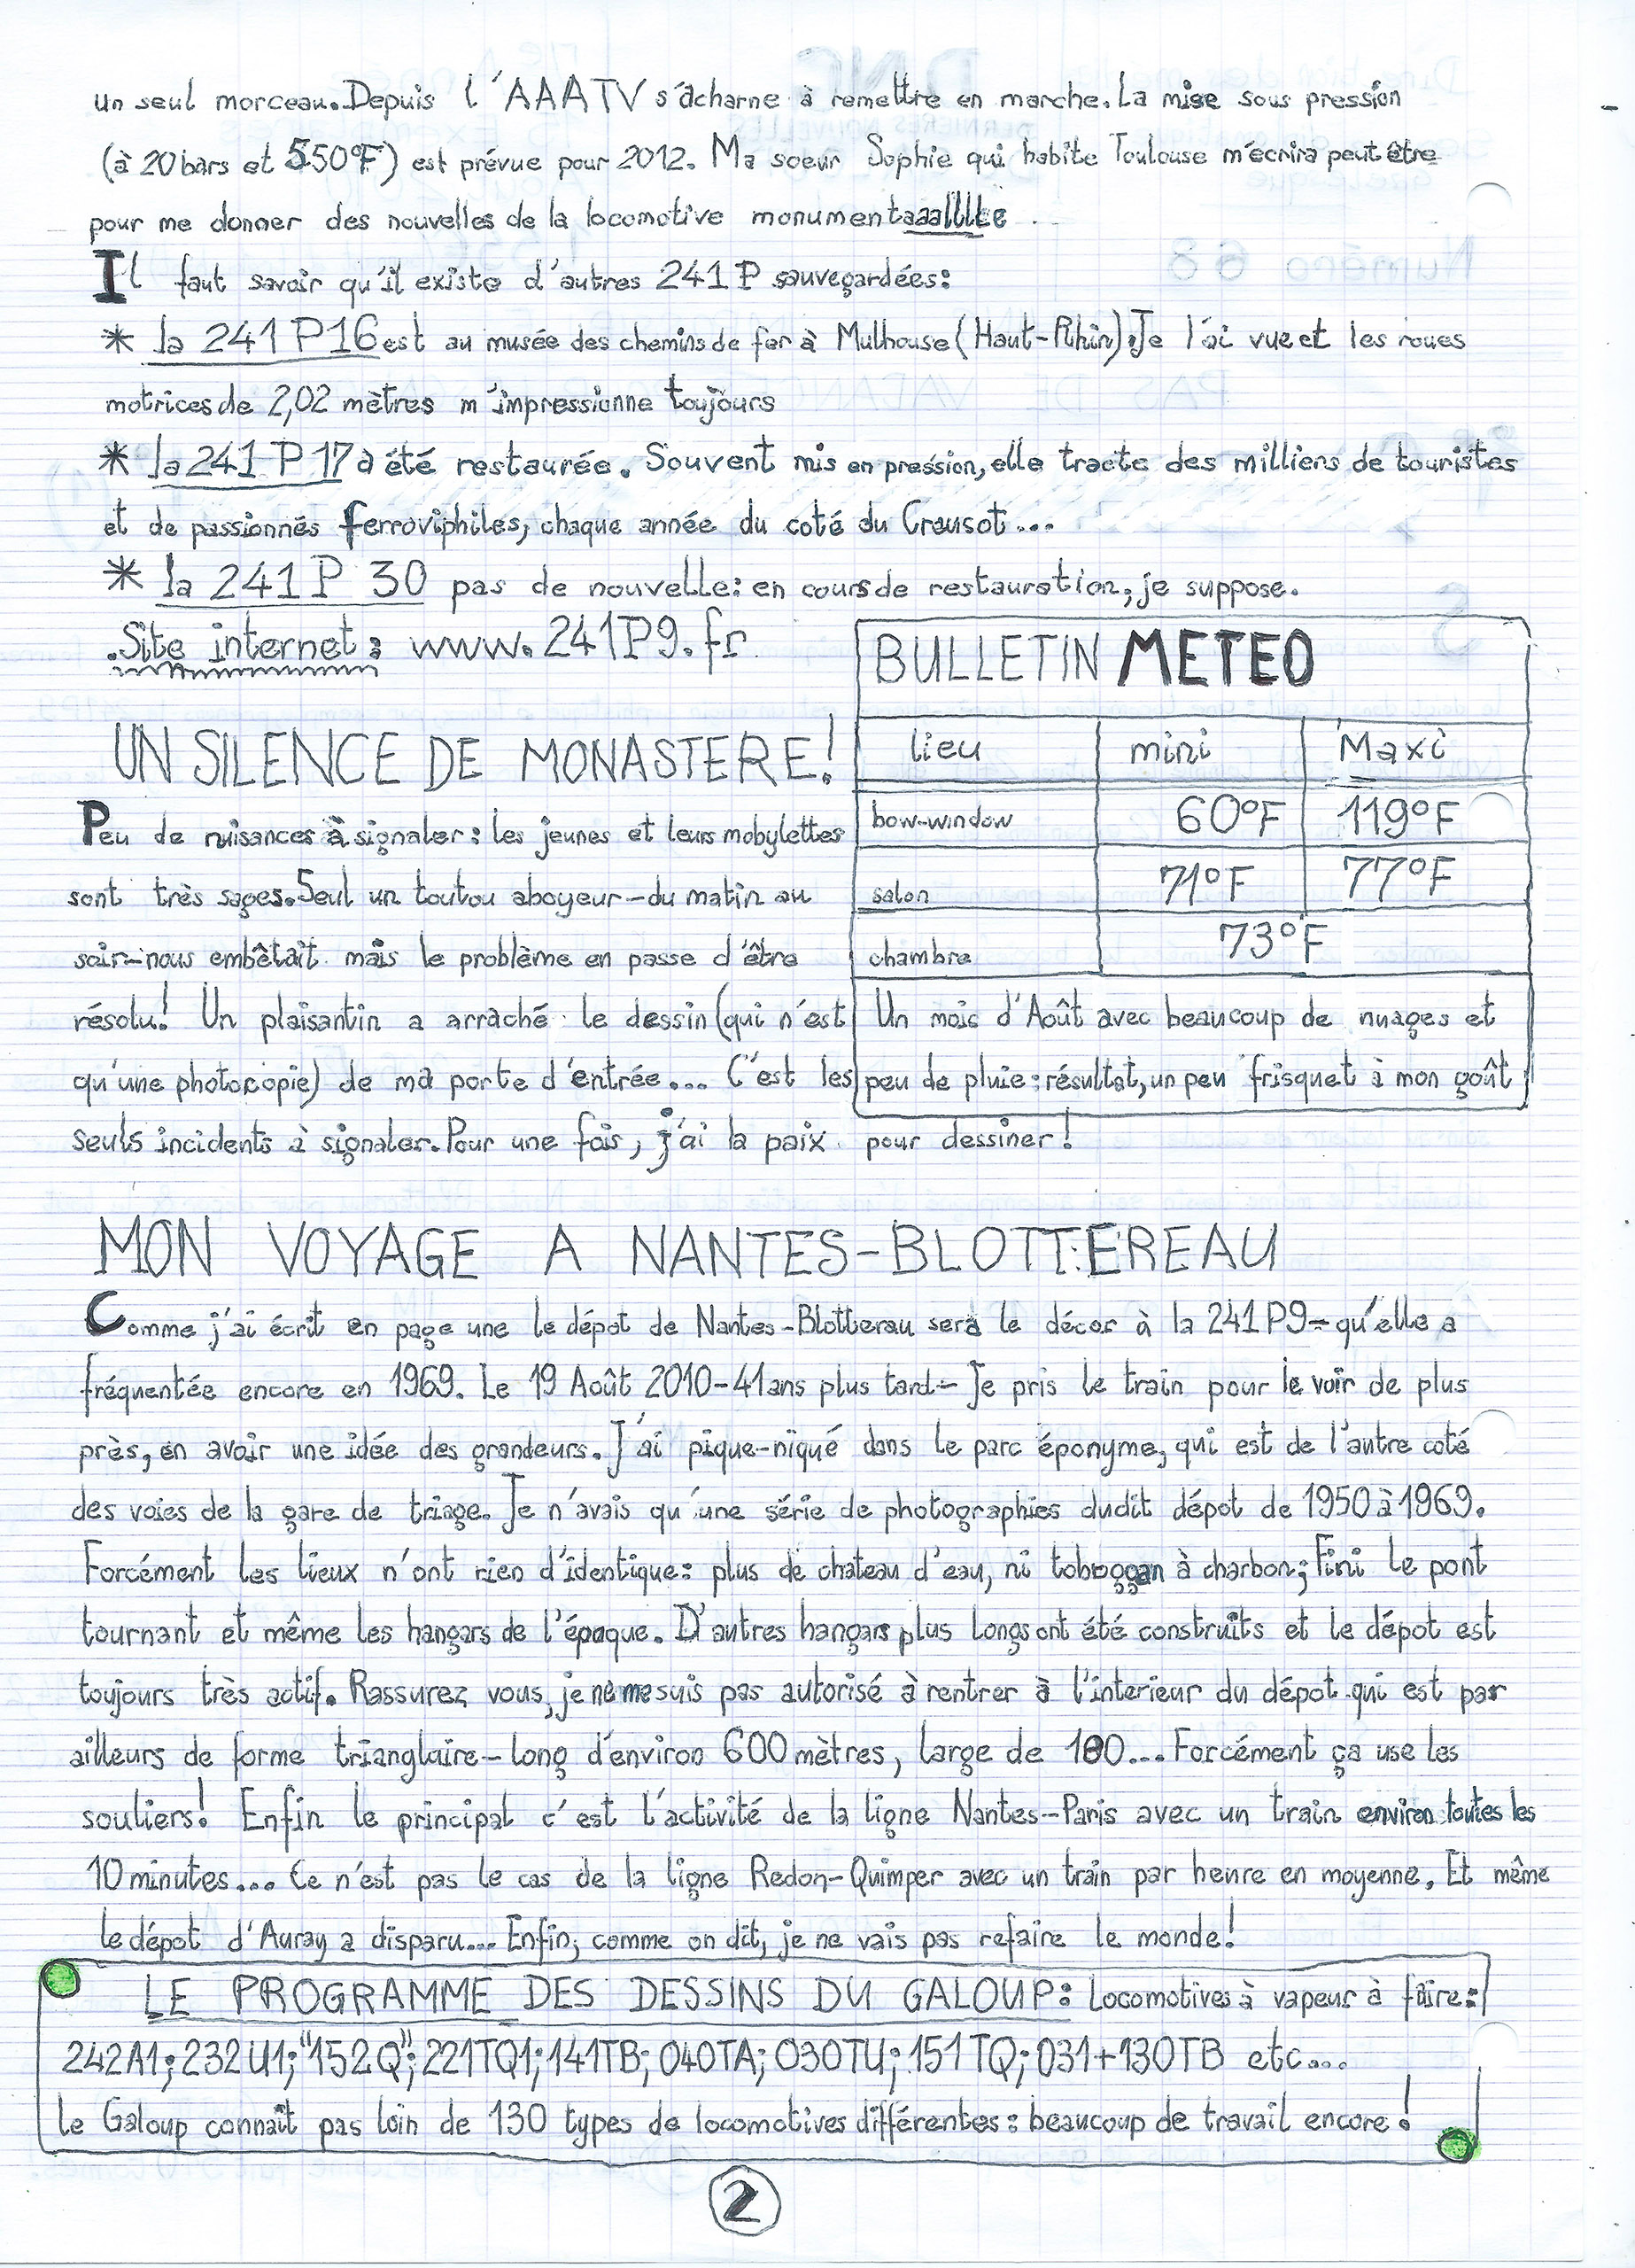 un seul morceau. Depuis l'AAATV s'acharne à remettre en marche. La mise sous pression
(à 20 bars et 550°F) est prévue pour 2012. Ma soeur Sophie qui habite Toulouse m'écrira peut être
pour me donner des nouvelles de la locomotive monumentaaallllle.
Il faut savoir qu'il existe d'autres 241 P sauvegardées:
* la 241 P 16 est au musée des chemins de fer à Mulhouse (Haut-Rhin). Je l'ai vue et les roues
motrices de 2,02 mètres m'impressionne toujours
* la 241 P 17 a été restaurée. Souvent mis en pression, elle tracte des milliers de touristes
et de passionnés ferroviphiles, chaque année du coté du Creusot...
* la 241 P 30 pas de nouvelle: en cours de restauration, je suppose.
.Site internet: www.241P9.fr
UN SILENCE DE MONASTERE!
Peu de nuisances à signaler: les jeunes et leurs mobylettes
sont très sages. Seul un toutou aboyeur-du matin au
soir-nous embêtait mais le problème en passe d'être
résolu! Un plaisantin a arraché le dessin (qui n'est
qu'une photocopie) de ma porte d'entrée... C'est les
seuls incidents à signaler. Pour une fois, j'ai la paix pour dessiner!
BULLETIN METEO
lieu mini Maxi
bow-window 60°F 119°F
salon 71°F 77°F
chambre 73°F
Un mois d'Août avec beaucoup de nuages et
peu de pluie: résultat, un peu frisquet à mon goût
MON VOYAGE A NANTES-BLOTTEREAU
Comme j'ai écrit en page une le dépot de Nantes-Blotterau sera le décor à la 241P9-qu'elle a
fréquentée encore en 1969. Le 19 Août 2010-41 ans plus tard- Je pris le train pour le voir de plus
près, en avoir une idée des grandeurs. J'ai pique-niqué dans le parc éponyme, qui est de l'autre coté
des voies de la gare de triage. Je n'avais qu'une série de photographies dudit dépot de 1950 à 1969.
Forcément les lieux n'ont rien d'identique: plus de chateau d'eau, ni toboggan à charbon; Fini le pont
tournant et même les hangars de l'époque. D'autres hangars plus longs ont été construits et le dépot est
toujours très actif. Rassurez vous, je ne me suis pas autorisé à rentrer à l'interieur du dépot qui est par
ailleurs de forme trianglaire-long d'environ 600 mètres, large de 180... Forcément ça use les
souliers! Enfin le principal c'est l'activité de la ligne Nantes-Paris avec un train environ toutes les
10 minutes... Ce n'est pas le cas de la ligne Redon-Quimper avec un train par heure en moyenne. Et même
le dépot d'Auray a disparu... Enfin, comme on dit, je ne vais pas refaire le monde!
LE PROGRAMME DES DESSINS DU GALOUP: Locomotives à vapeur à faire:
242A1; 232U1; "152Q"; 221TQ1; 141TB; 040TA; 030TU; 151TQ; 031+130TB etc...
le Galoup connaît pas loin de 130 types de locomotives différentes: beaucoup de travail encore!
2